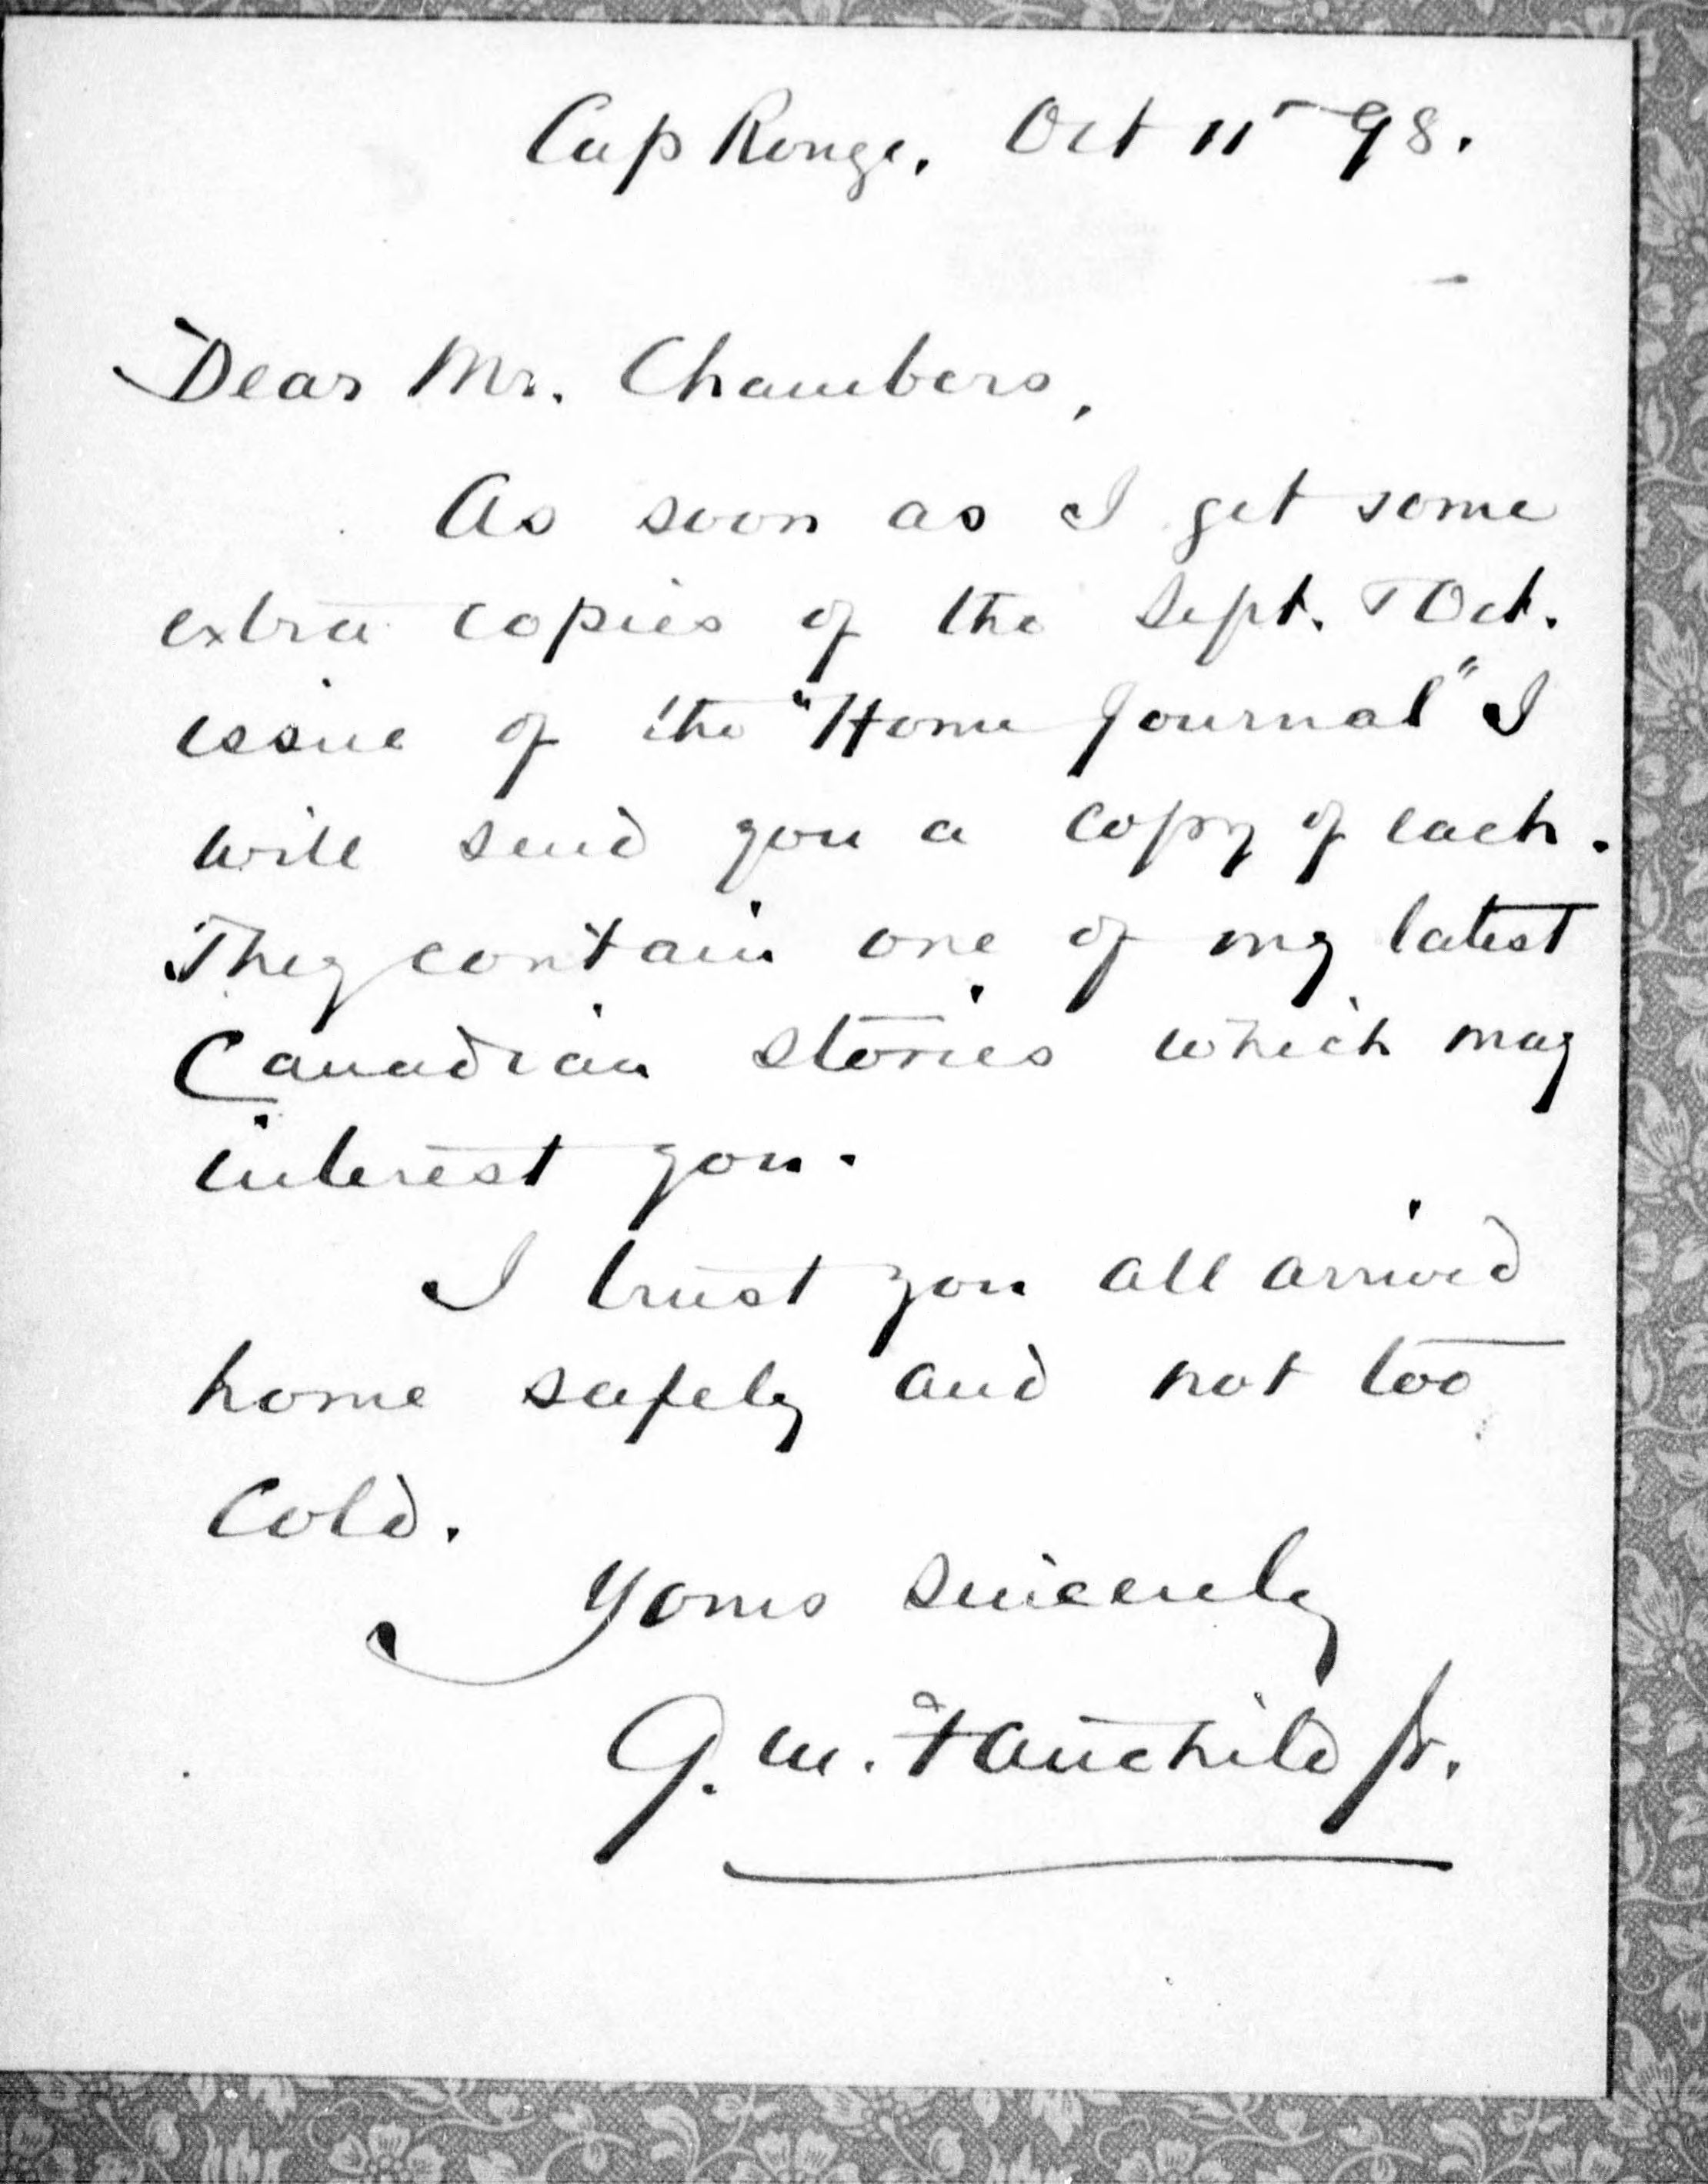 Cap Rouge, Oct 11 - 98.
Dear Mr. Chambers,
As soon as I get some
extra copies of the Sept. & Oct.
issue of the "Home Journal" I
will send you a copy of each.
They contain one of my latest
Canadian stories which may
interest you.
I trust you all arrived
home safely and not too
cold.
Yours sincerely
G. M. Fairchild Jr.